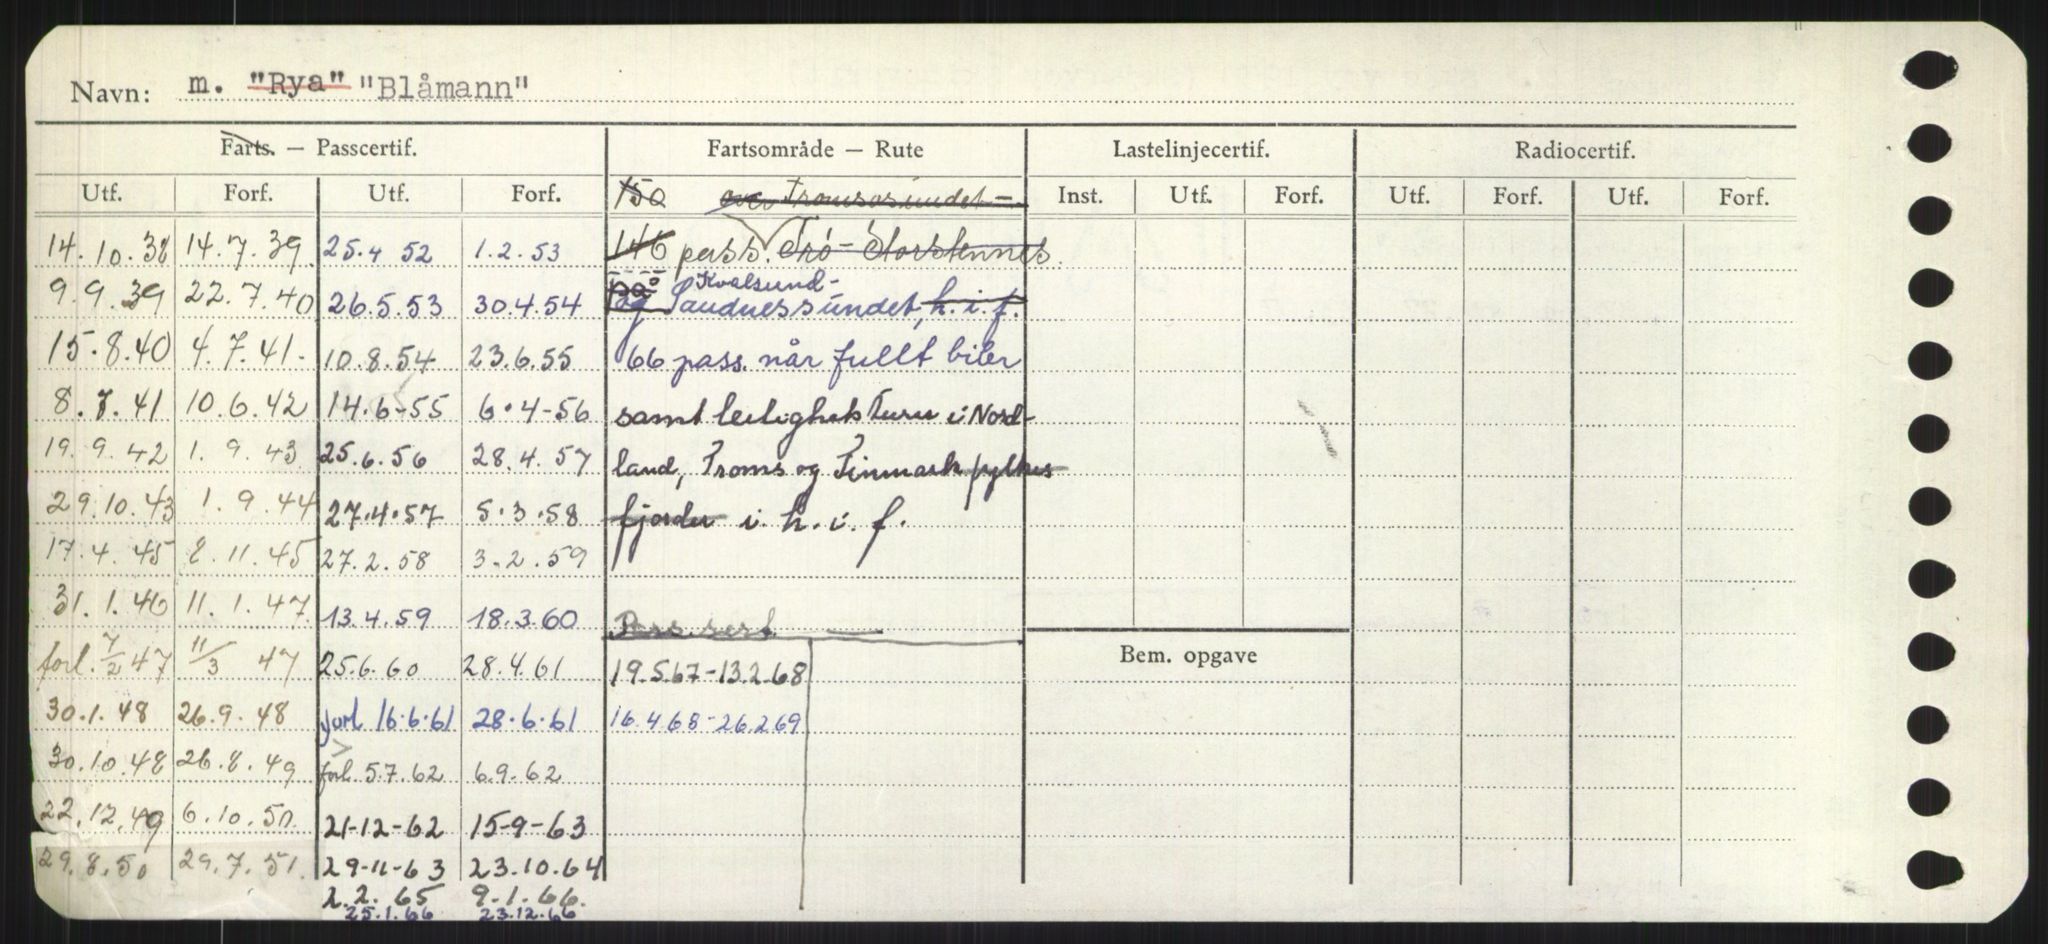 Navn: m. "Rya" "Blåmann"
Farts. — Passcertif. Fartsområde — Rute Lastelinjecertif. Radiocertif.
Utf. Forf. Utf. Forf. 150 over Tromsøsundet — Inst. Utf. Forf. Utf. Forf. Utf. Forf.
14.10.38 14.7.39 25.4 52 1.2.53 146 pass. Trø - Storstennes
Kvalsund-
9.9.39 22.7.40 26.5.53 30.4.54 på og Sandnessundet, h.i.f.
15.8.40 4.7.41. 10.8.54 23.6.55 66 pass. når fullt biler
8.7.41 10.6.42 14.6-55 6.4-56 samt leilighetsturer i Nord-
19.9.42 1.9.43 25.6.56 28.4.57 land, Troms og Finmark fylkes
29.10.43 1.9.44 27.4.57 5.3.58 fjorder i h.i.f.
17.4.45 2.11.45 27.2.58 3.2.59
31.1.46 11.1.47 13.4.59 18.3.60 Pass.sert. —
forl. 7/2 47 11/3 47 25.6.60 28.4.61 19.5.67-13.2.68 Bem. opgave
30.1.48 26.9.48 forl 16.6.61 28.6.61 16.4.68-26.2.69
30.10.48 26.8.49 forl 5.7.62 6.9.62
22.12.49 6.10.50 21-12-62 15-9-63
29.8.50 29.7.51. 29-11-63 23.10.64
2.2.65 9.1.66.
25.1.66 23.12.66